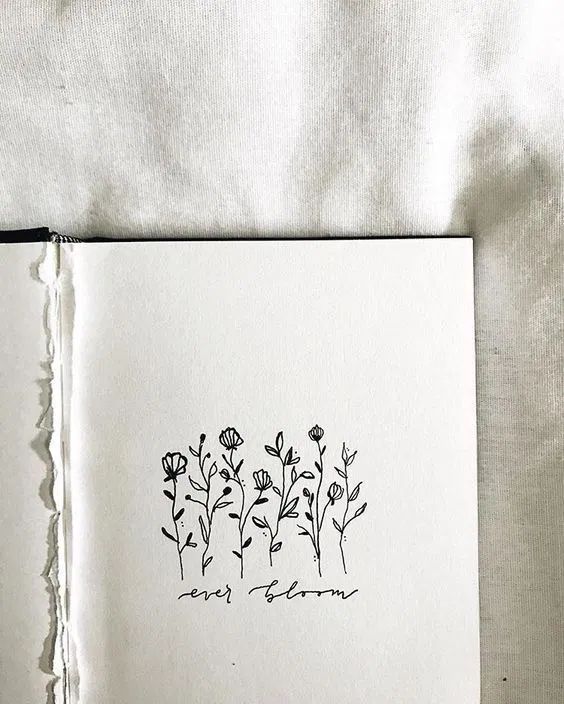 ever bloom